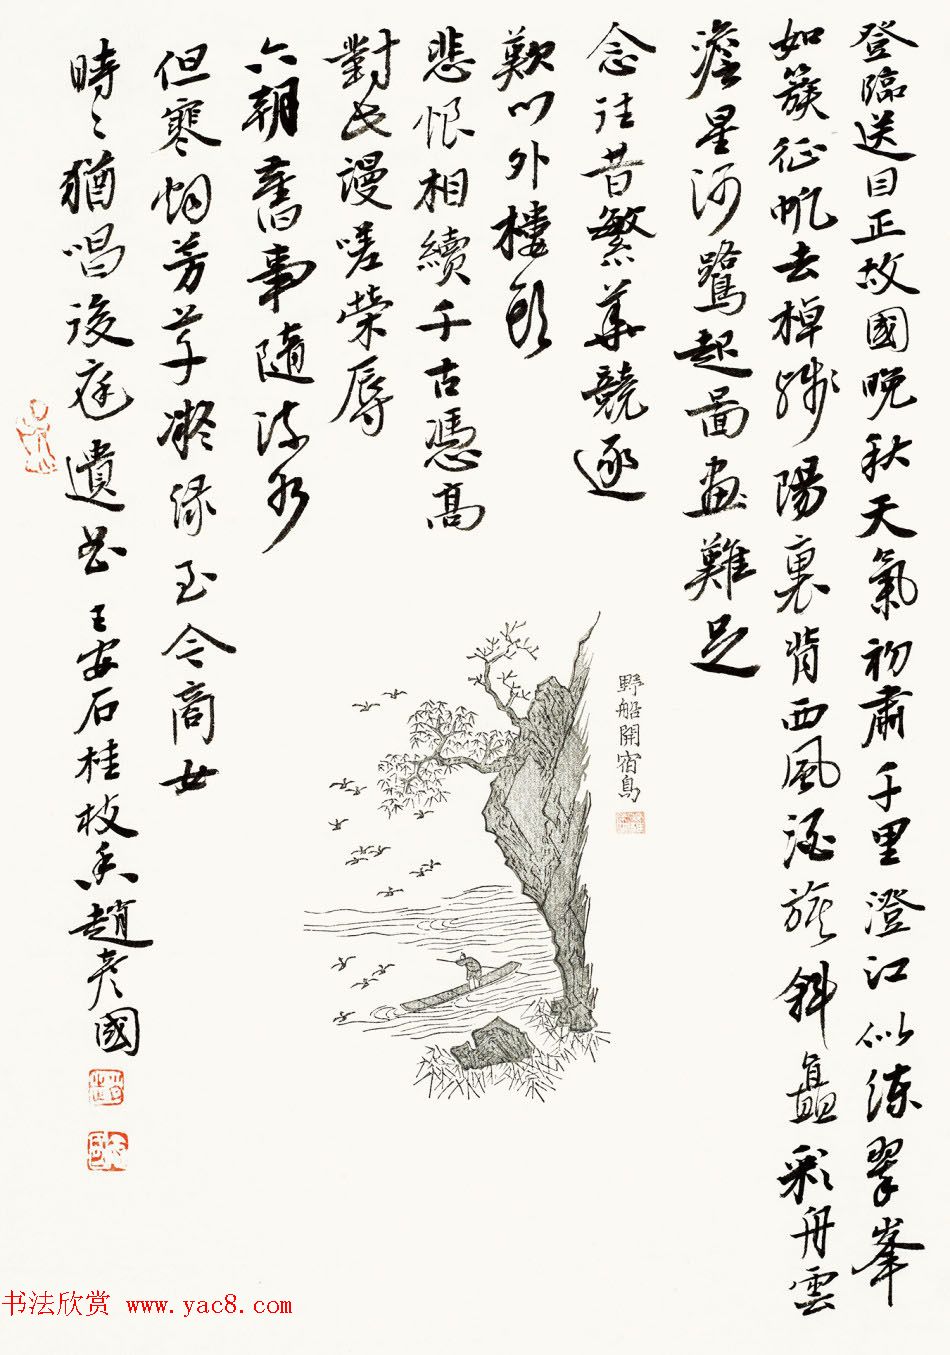 登臨送目正故國晚秋天氣初肅千里澄江似練翠峯
如簇征帆去棹殘陽裏背西風酒旗斜矗彩舟雲
澹星河鷺起啚畫難足
念往昔繁華競逐
歎門外樓頭
悲恨相續千古憑高
對此謾嗟榮辱
六朝舊事隨流水
但寒烟芳草凝綠至今商女
時〻猶唱後庭遺曲 王安石桂枝香趙彥國
野船開宿鳥
书法欣赏 www.yac8.com